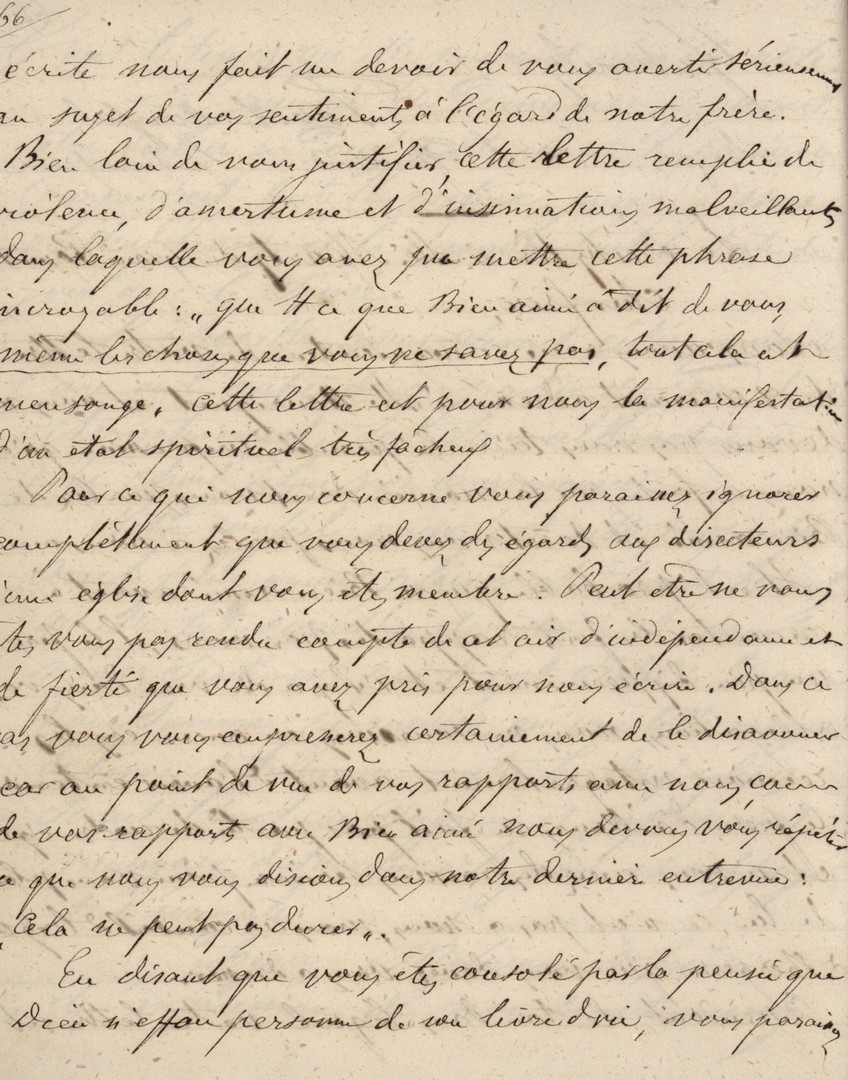 66
écrite nous fait un devoir de vous avertir sérieusement
au sujet de vos sentiments à l'égard de notre frère.
Bien loin de vous justifier, cette lettre remplie de
violence, d'amertume et d'insinuations malveillantes
dans laquelle vous avez pu mettre cette phrase
incroyable: „ que tt ce que Bien aimé a dit de vous,
même les choses que vous ne savez pas, tout cela est
mensonge „ cette lettre est pour nous la manifestation
d'un état spirituel très fâcheux
Pour ce qui nous concerne vous paraissez ignorer
complètement que vous devez des égards aux directeurs
d'une église dont vous êtes membre. Peut être ne vous
êtes vous pas rendu compte de cet air d'indépendance et
de fierté que vous avez pris pour nous écrire. Dans ce
cas vous vous empresserez certainement de le désavouer
car au point de vue de vos rapports avec nous comme
de vos rapports avec Bien aimé nous devons vous répéter
ce que nous vous disions dans notre dernière entrevue:
„ Cela ne peut pas durer „.
En disant que vous êtes consolé par la pensée que
Dieu n'efface personne de son livre de vie, vous paraissez